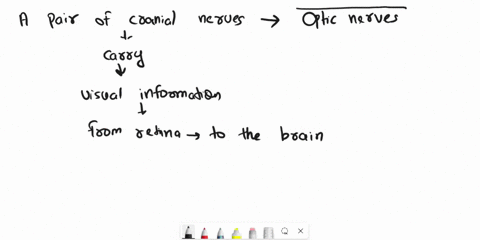 A pair of cranial nerves → Optic nerves
↓
carry
↓
visual information
↓
from retina → to the brain